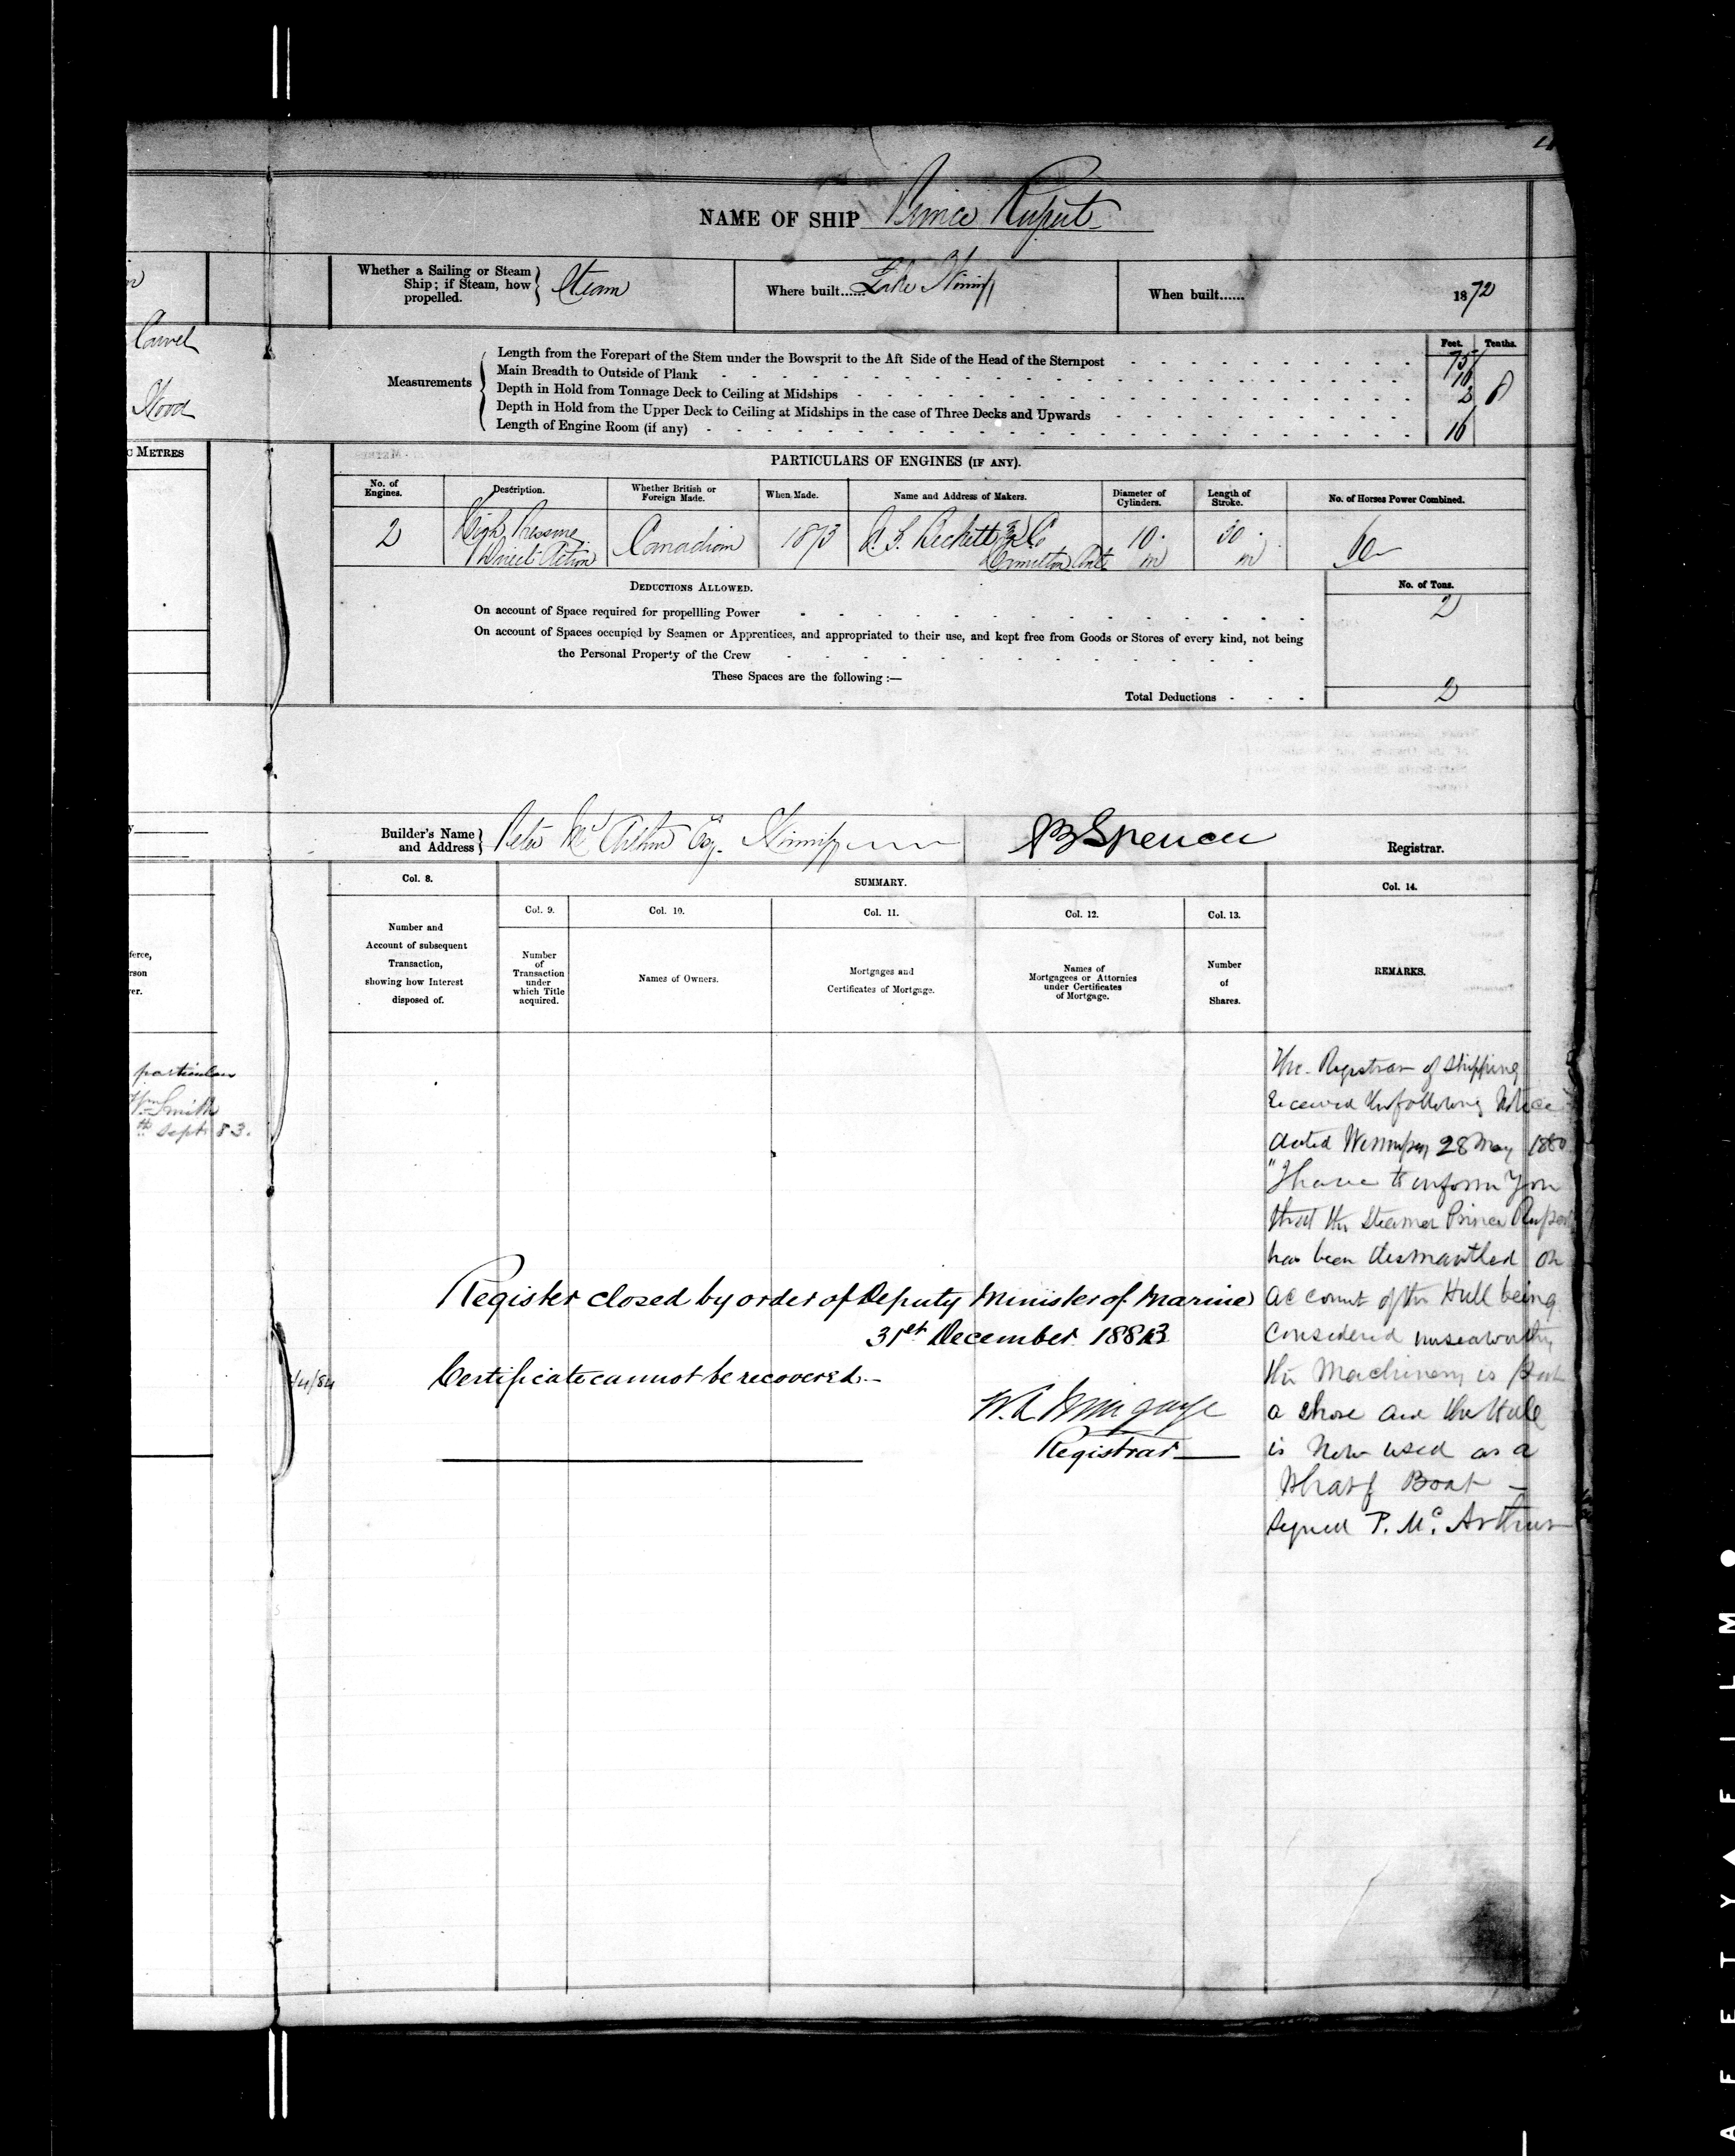 NAME OF SHIP Prince Rupert
Whether a Sailing or Steam
Ship; if Steam, how
propelled.
Steam
Where built......Lake Winnipg
When built......
1872
Carvel
Wood
Measurements
Feet. Tenths.
Length from the Forepart of the Stem under the Bowsprit to the Aft Side of the Head of the Sternpost 75
Main Breadth to Outside of Plank
Depth in Hold from Tonnage Deck to Ceiling at Midships
Depth in Hold from the Upper Deck to Ceiling at Midships in the case of Three Decks and Upwards
Length of Engine Room (if any) 16
METRES
PARTICULARS OF ENGINES (IF ANY).
No. of
Engines.
Description.
Whether British or
Foreign Made.
When Made.
Name and Address of Makers.
Diameter of
Cylinders.
Length of
Stroke.
No. of Horses Power Combined.
2
High Pressure
Direct Action
Canadian
1873
Beckett & Co
Hamilton Ont
10 in
30 in
DEDUCTIONS ALLOWED.
No. of Tons.
On account of Space required for propellling Power 2
On account of Spaces occupied by Seamen or Apprentices, and appropriated to their use, and kept free from Goods or Stores of every kind, not being
the Personal Property of the Crew
These Spaces are the following :—
Total Deductions 2
Builder's Name
and Address
Peter McArthur Esq. Winnipg
Spencer
Registrar.
Col. 8.
SUMMARY.
Col. 14.
Col. 9.
Col. 10.
Col. 11.
Col. 12.
Col. 13.
Number and
Account of subsequent
Transaction,
showing how Interest
disposed of.
Number
of
Transaction
under
which Title
acquired.
Names of Owners.
Mortgages and
Certificates of Mortgage.
Names of
Mortgagees or Attornies
under Certificates
of Mortgage.
Number
of
Shares.
REMARKS.
particulars
Wm Smith
th Sept 83.
The Registrar of Shipping
received the following Notice
dated Winnipeg 28 May 1880
"I have to inform You
that the Steamer Prince Rupert
has been dismantled on
account of the Hull being
Considered unseaworthy
the Machinery is
a shore and the Hull
is Now used as a
Wharf Boat —
Signed P. Mc. Arthur
Register closed by order of Deputy Minister of Marine
31st December 1883
Certificate cannot be recovered.—
Registrar
4/84